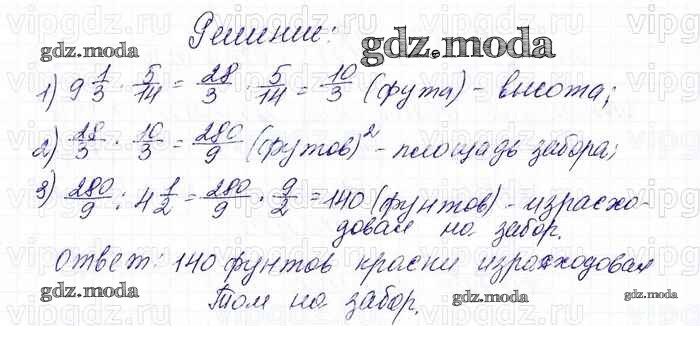 Решение:
gdz.moda
gdz.moda
1) 9 1/3 · 5/14 = 28/3 · 5/14 = 10/3 (фута) - высота;
2) 28/3 · 10/3 = 280/9 (футов)² - площадь забора;
3) 280/9 : 4 1/2 = 280/9 · 9/2 = 140 (фунтов) - израсхо-
довал на забор.
Ответ: 140 фунтов краски израсходовал
Том на забор.
gdz.moda
gdz.moda
gdz.moda